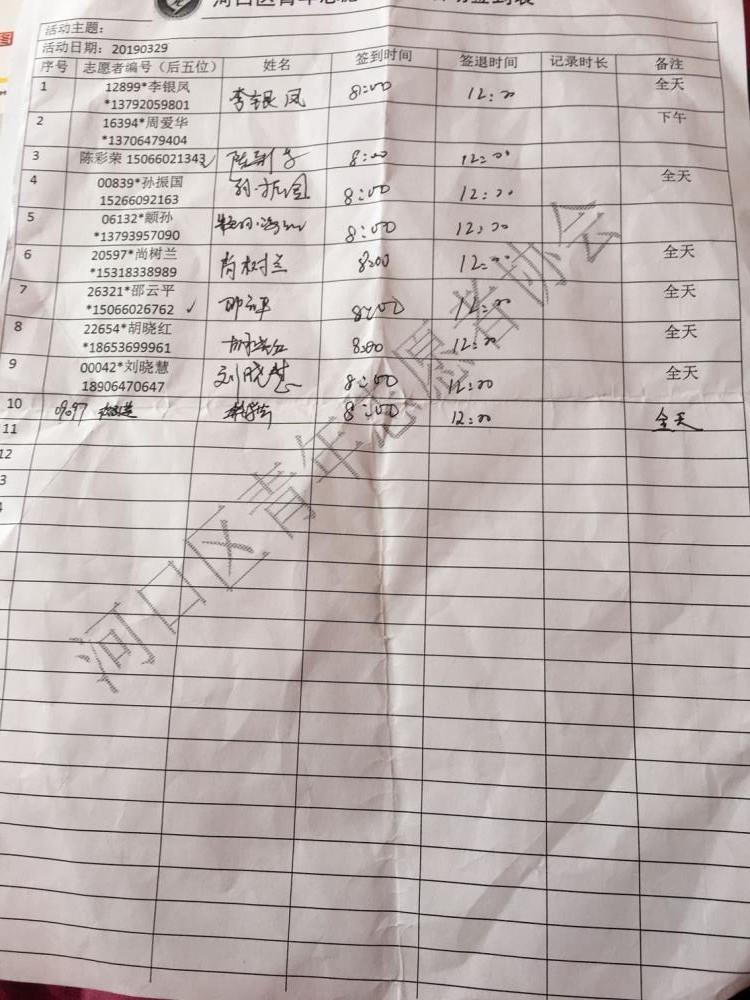 活动主题:
活动日期: 20190329
序号 志愿者编号（后五位） 姓名 签到时间 签退时间 记录时长 备注
1 12899*李银凤 李银凤 8:00 12:00 全天
*13792059801
2 16394*周爱华 下午
*13706479404
3 陈彩荣 15066021343 8:00 12:00
4 00839*孙振国 孙振国 8:00 12:00 全天
15266092163
5 06132*颛孙 8:00 12:00
*13793957090
6 20597*尚树兰 尚树兰 8:00 12:00 全天
*15318338989
7 26321*邵云平 邵云平 8:00 12:00 全天
*15066026762 ✓
8 22654*胡晓红 胡晓红 8:00 12:00 全天
*18653699961
9 00042*刘晓慧 刘晓慧 8:00 12:00 全天
18906470647
10 8:00 12:00 全天
11
12
河口区青年志愿者协会